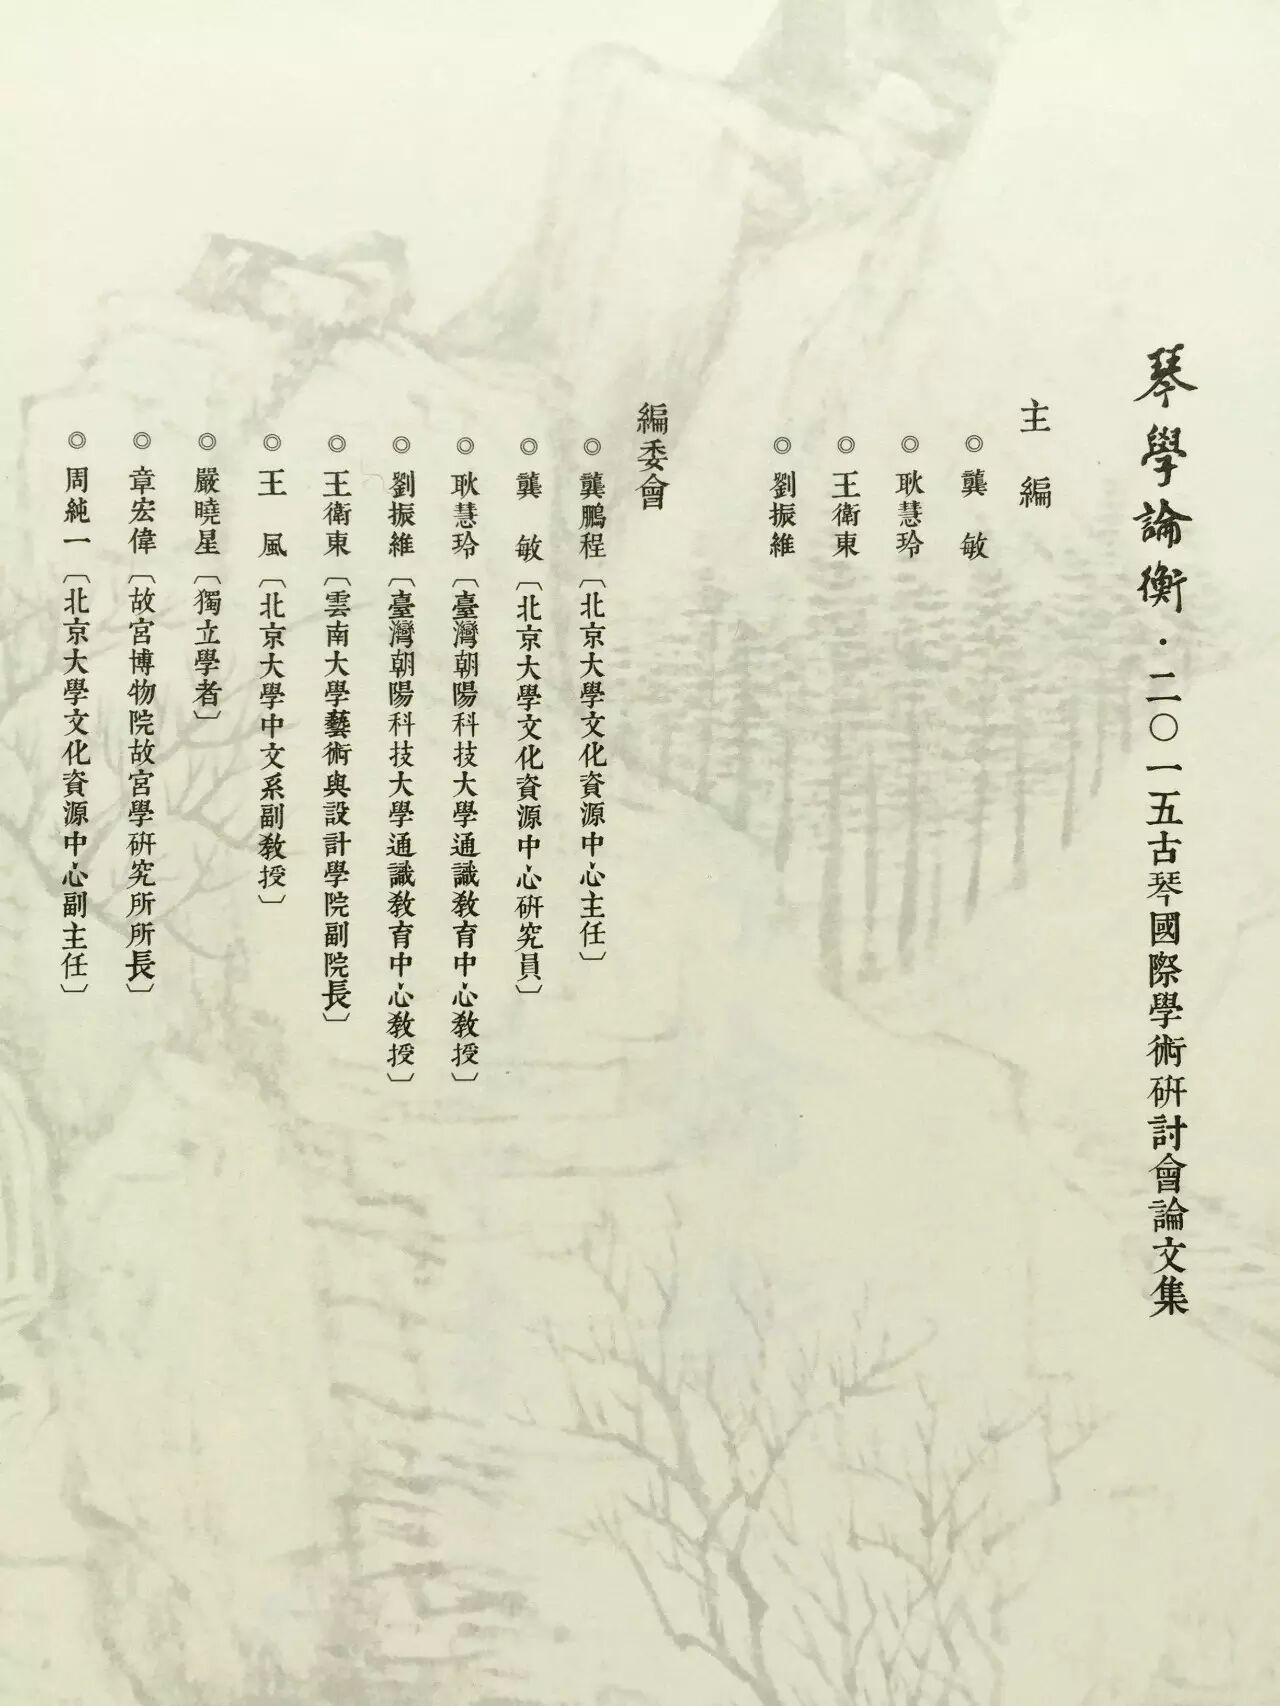 琴學論衡·二〇一五古琴國際學術研討會論文集
主　編
◎ 龔　敏
◎ 耿慧玲
◎ 王衛東
◎ 劉振維
編委會
◎ 龔鵬程〔北京大學文化資源中心主任〕
◎ 龔　敏〔北京大學文化資源中心研究員〕
◎ 耿慧玲〔臺灣朝陽科技大學通識教育中心教授〕
◎ 劉振維〔臺灣朝陽科技大學通識教育中心教授〕
◎ 王衛東〔雲南大學藝術與設計學院副院長〕
◎ 王　風〔北京大學中文系副教授〕
◎ 嚴曉星〔獨立學者〕
◎ 章宏偉〔故宮博物院故宮學研究所所長〕
◎ 周純一〔北京大學文化資源中心副主任〕